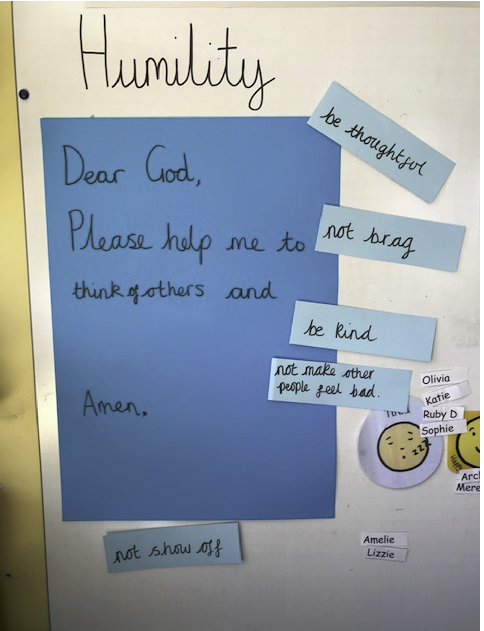 Humility
be thoughtful
Dear God,
Please help me to
not brag
think of others and
be kind
not make other
people feel bad.
Amen.
Olivia
Katie
Ruby D
Sophie
zzz
Amelie
Lizzie
not show off